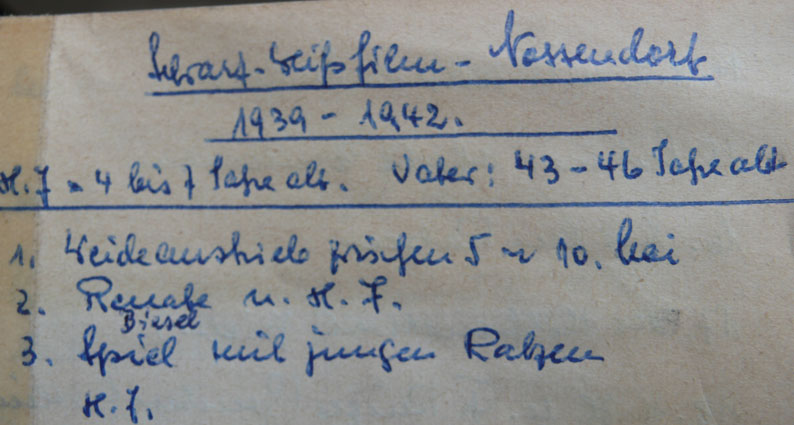 Schwarz-Weißfilm - Nossendorf
1939 - 1942.
H.J. = 4 bis 7 Jahre alt. Vater: 43 - 46 Jahre alt
1. Weideaustrieb zwischen 5 u 10. Mai
2. Renate u. H.J.
Biesel
3. Spiel mit jungen Katzen
H.J.